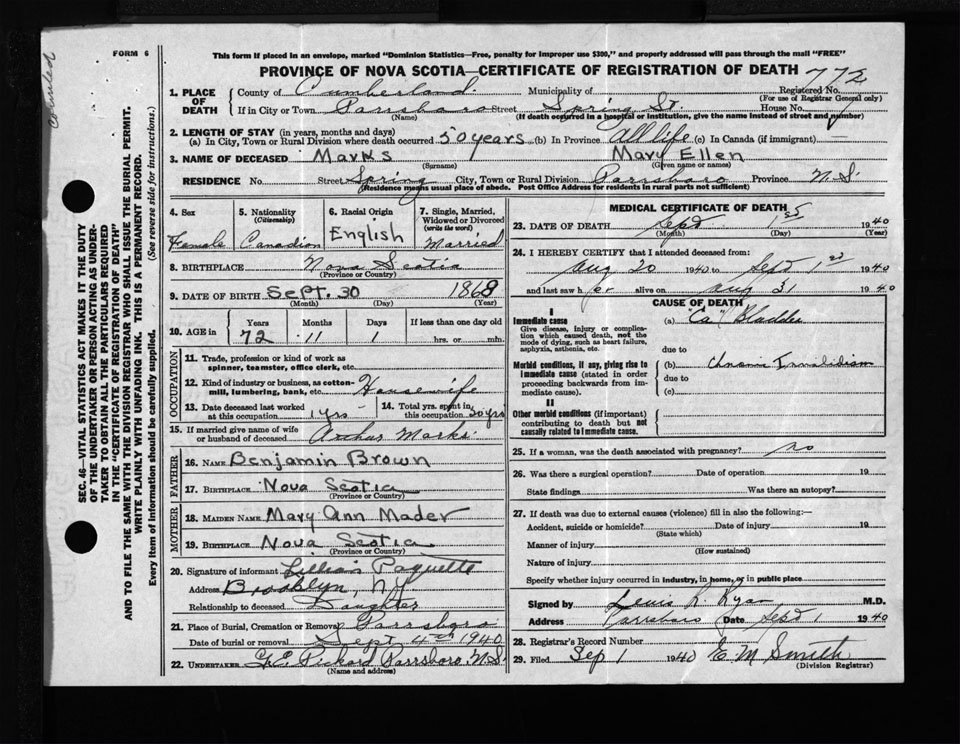 FORM 6
This form if placed in an envelope, marked "Dominion Statistics—Free, penalty for improper use $300," and properly addressed will pass through the mail "FREE"
PROVINCE OF NOVA SCOTIA—CERTIFICATE OF REGISTRATION OF DEATH 772
1. PLACE OF DEATH County of Cumberland Municipality of Registered No.
(For use of Registrar General only)
If in City or Town Parrsboro Street Spring St. House No.
(Name) (If death occurred in a hospital or institution, give the name instead of street and number)
2. LENGTH OF STAY (in years, months and days)
(a) In City, Town or Rural Division where death occurred 50 years (b) In Province All life (c) In Canada (if immigrant)
3. NAME OF DECEASED Marks Mary Ellen
(Surname) (Given name or names)
RESIDENCE No. Street Spring City, Town or Rural Division Parrsboro Province N.S.
(Residence means usual place of abode. Post Office Address for residents in rural parts not sufficient)
SEC. 46—VITAL STATISTICS ACT MAKES IT THE DUTY
OF THE UNDERTAKER OR PERSON ACTING AS UNDER-
TAKER TO OBTAIN ALL THE PARTICULARS REQUIRED
IN THE "CERTIFICATE OF REGISTRATION OF DEATH"
AND TO FILE THE SAME WITH THE DIVISION REGISTRAR WHO SHALL ISSUE THE BURIAL PERMIT.
WRITE PLAINLY WITH UNFADING INK. THIS IS A PERMANENT RECORD.
Every item of information should be carefully supplied. (See reverse side for instructions.)
4. Sex
Female
5. Nationality
(Citizenship)
Canadian
6. Racial Origin
English
7. Single, Married,
Widowed or Divorced
(write the word)
Married
8. BIRTHPLACE Nova Scotia
(Province or Country)
9. DATE OF BIRTH Sept. 30 1868
(Month) (Day) (Year)
10. AGE in Years Months Days If less than one day old
72 11 1 hrs. or min.
OCCUPATION
11. Trade, profession or kind of work as
spinner, teamster, office clerk, etc.
12. Kind of industry or business, as cotton-
mill, lumbering, bank, etc. Housewife
13. Date deceased last worked
at this occupation 1 yrs
14. Total yrs. spent in
this occupation 50 yrs
15. If married give name of wife
or husband of deceased Arthur Marks
FATHER
16. NAME Benjamin Brown
17. BIRTHPLACE Nova Scotia
(Province or Country)
MOTHER
18. MAIDEN NAME Mary Ann Mader
19. BIRTHPLACE Nova Scotia
(Province or Country)
20. Signature of informant Lillian Paquette
Address Brooklyn, N.Y.
Relationship to deceased Daughter
21. Place of Burial, Cremation or Removal Parrsboro
Date of burial or removal Sept 4th 1940
22. UNDERTAKER G.E. Pickard Parrsboro, N.S.
(Name and address)
MEDICAL CERTIFICATE OF DEATH
23. DATE OF DEATH Sept 1st 1940
(Month) (Day) (Year)
24. I HEREBY CERTIFY that I attended deceased from:
Aug 20 1940 to Sept 1st 1940
and last saw her alive on Aug 31 1940
CAUSE OF DEATH
I
Immediate cause
Give disease, injury or complica-
tion which caused death, not the
mode of dying, such as heart failure,
asphyxia, asthenia, etc.
(a) "Ca" Bladder
due to
Morbid conditions, if any, giving rise to
immediate cause (stated in order
proceeding backwards from im-
mediate cause).
(b) Chronic Invalidism
due to
(c)
II
Other morbid conditions (if important)
contributing to death but not
causally related to immediate cause.
25. If a woman, was the death associated with pregnancy? no
26. Was there a surgical operation? Date of operation 19
State findings Was there an autopsy?
27. If death was due to external causes (violence) fill in also the following:—
Accident, suicide or homicide? Date of injury 19
(State which)
Manner of injury
(How sustained)
Nature of injury
Specify whether injury occurred in industry, in home, or in public place
Signed by Lewis R. Ryan M.D.
Address Parrsboro Date Sept 1 1940
28. Registrar's Record Number
29. Filed Sep 1 1940 E M Smith
(Division Registrar)